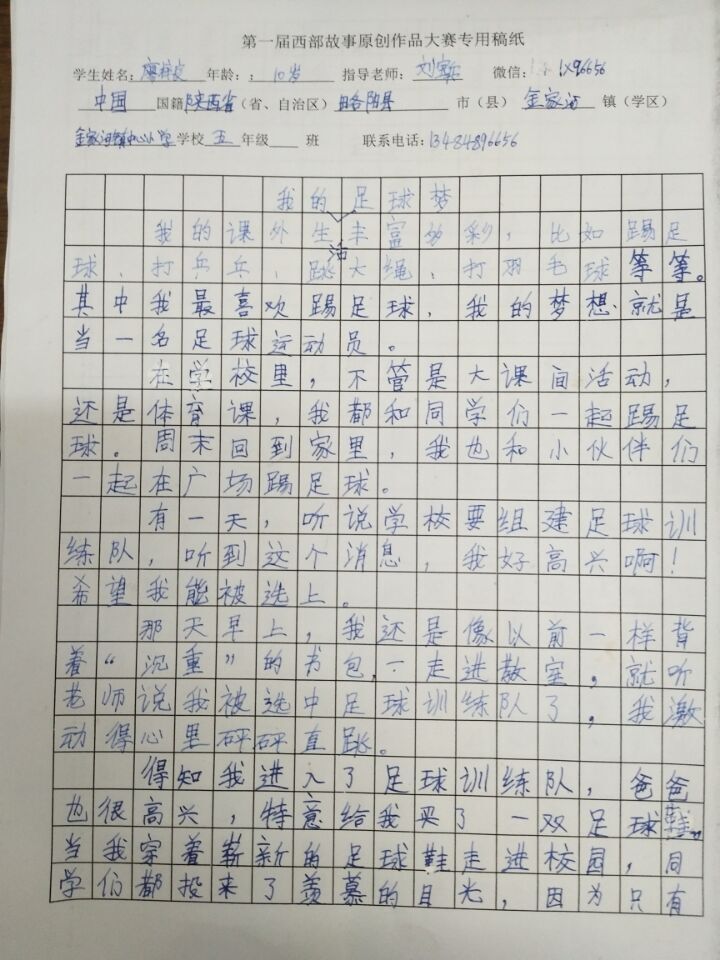 第一届西部故事原创作品大赛专用稿纸
学生姓名：廖梓 年龄：：10岁 指导老师：刘 微信：1x96656
中国 国籍 陕西省（省、自治区）略阳县 市（县） 金家河 镇（学区）
金家河镇中心小学 学校 五 年级 班 联系电话：13484896656
我的足球梦
我的课外生活丰富多彩，比如踢足
球、打乒乓、跳大绳、打羽毛球等等。
其中我最喜欢踢足球，我的梦想就是
当一名足球运动员。
在学校里，不管是大课间活动，
还是体育课，我都和同学们一起踢足
球。周末回到家里，我也和小伙伴们
一起在广场踢足球。
有一天，听说学校要组建足球训
练队，听到这个消息，我好高兴啊！
希望我能被选上。
那天早上，我还是像以前一样背
着“沉重”的书包，一走进教室，就听
老师说我被选中足球训练队了，我激
动得心里砰砰直跳。
得知我进入了足球训练队，爸爸
也很高兴，特意给我买了一双足球鞋。
当我穿着崭新的足球鞋走进校园，同
学们都投来了羡慕的目光，因为只有